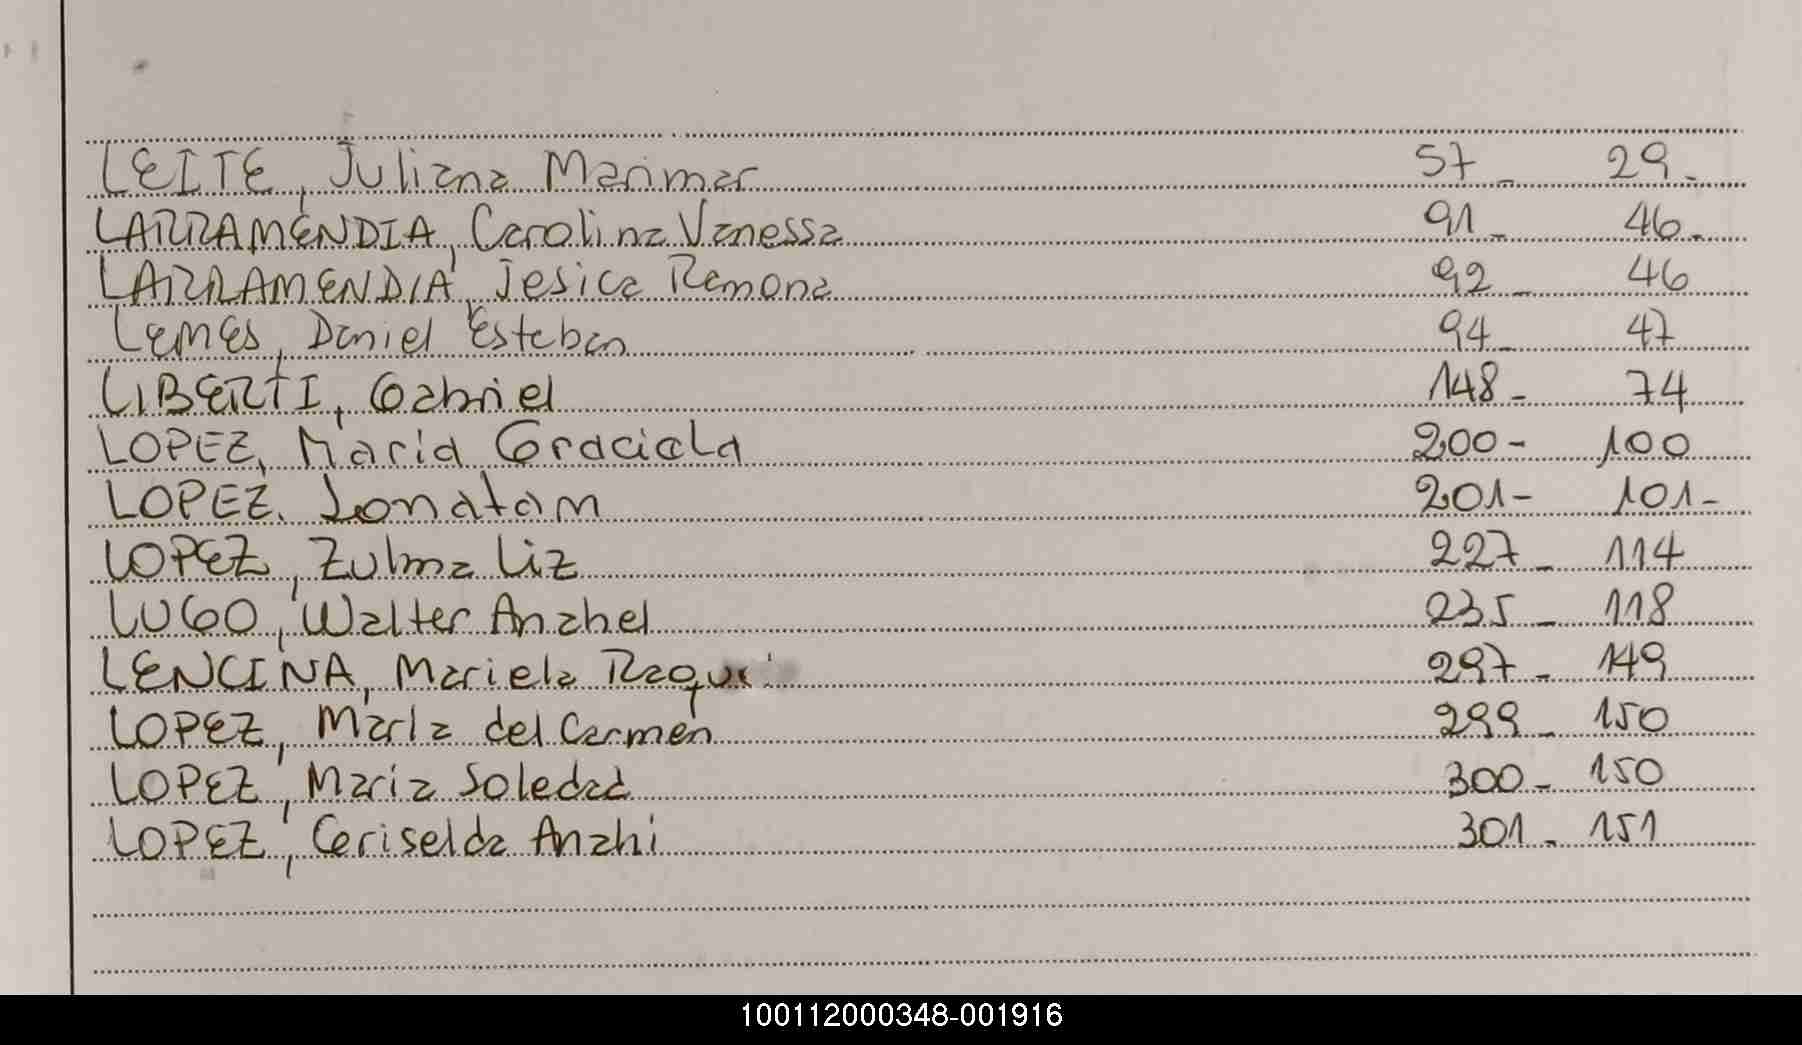 LEITE, Juliana Marimar 57 - 29 -
LARRAMENDIA, Carolina Vanessa 91 - 46 -
LARRAMENDIA, Jesica Ramona 92 - 46
LEMES, Daniel Esteban 94 - 47
LIBERTI, Gabriel 148 - 74
LOPEZ, Maria Graciela 200 - 100
LOPEZ, Jonatam 201 - 101 -
LOPEZ, Zulma Liz 227 - 114
LUGO, Walter Anahel 235 - 118
LENCINA, Mariela 297 - 149
LOPEZ, Marla del Carmen 299 - 150
LOPEZ, Maria Soledad 300 - 150
LOPEZ, Griselda Anahi 301 - 151
100112000348-001916